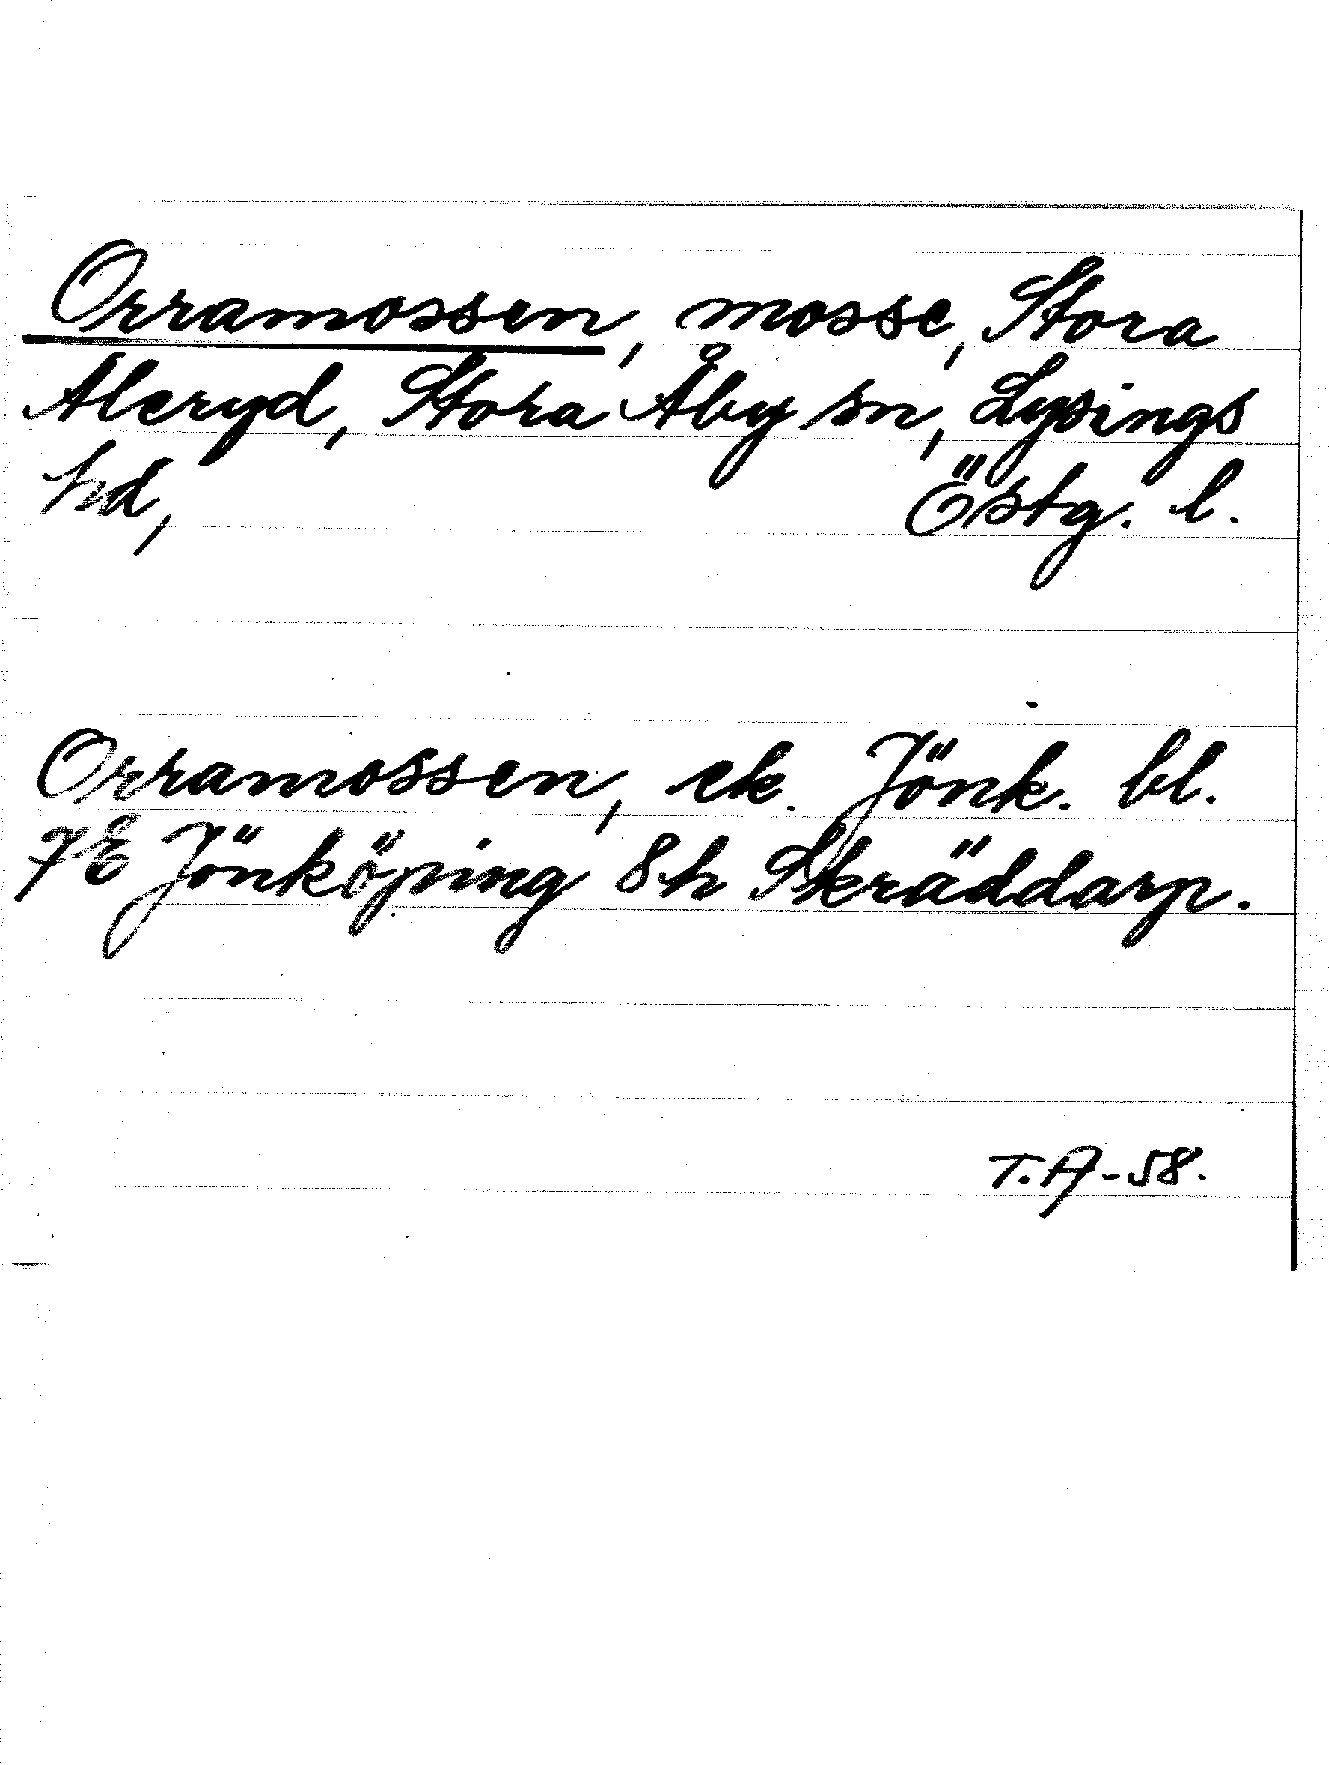 Orramossen, mosse, Stora
Aleryd, Stora Åby sn, Lysings
hd, Östg. l.
Orramossen, ek. Jönk. bl.
7E Jönköping 8h Skräddarp.
T.A-58.